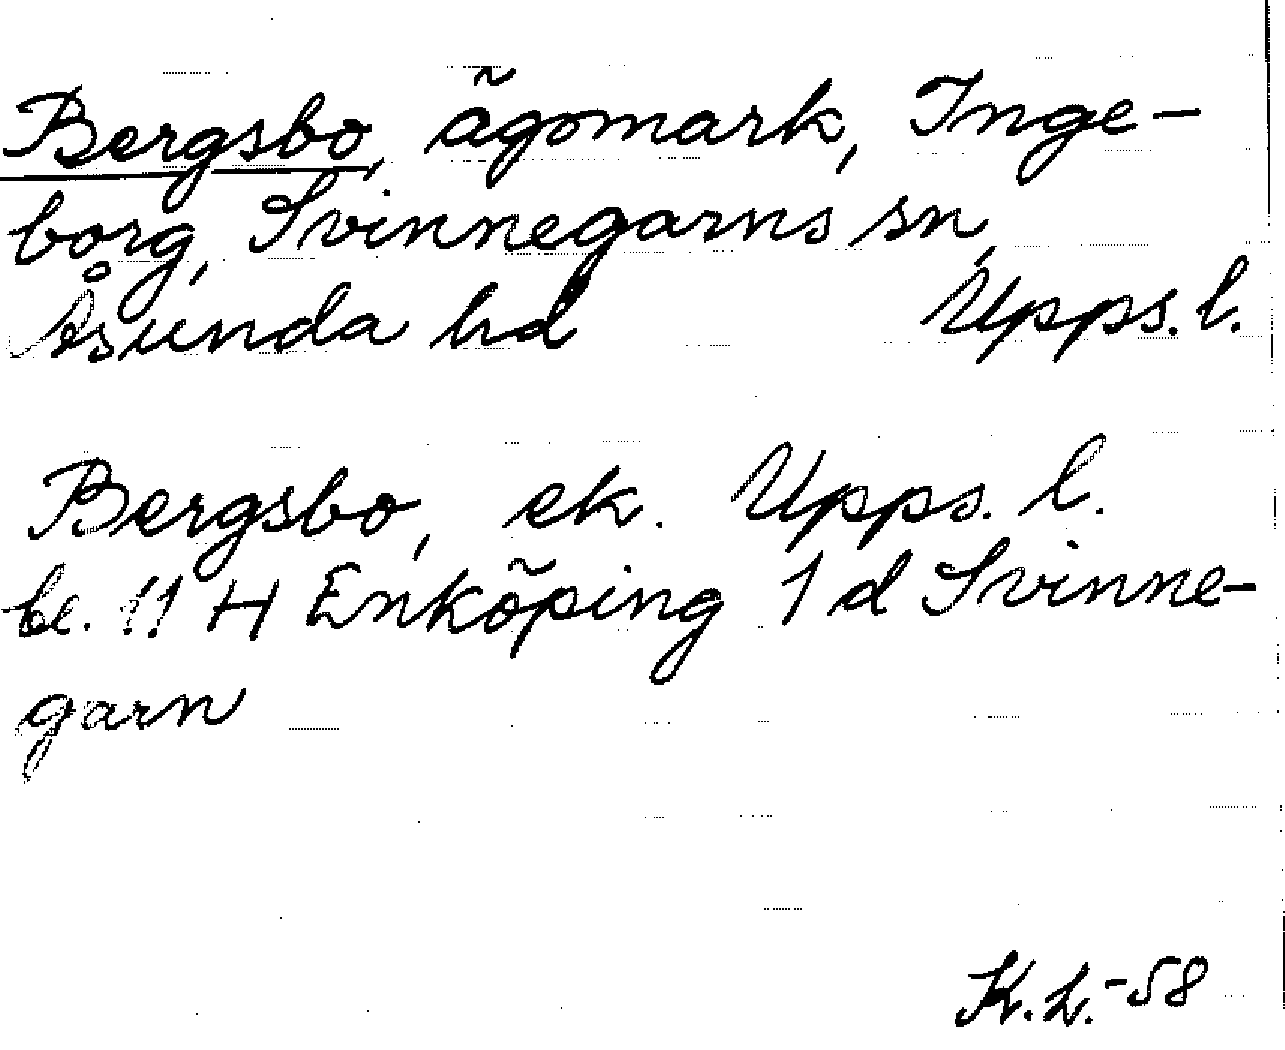 Bergsbo, ägomark, Inge-
borg, Svinnegarns sn,
Åsunda hd Upps. l.
Bergsbo, ek. Upps. l.
be. 11 H Enköping 1 d Svinne-
garn
K.L.-58